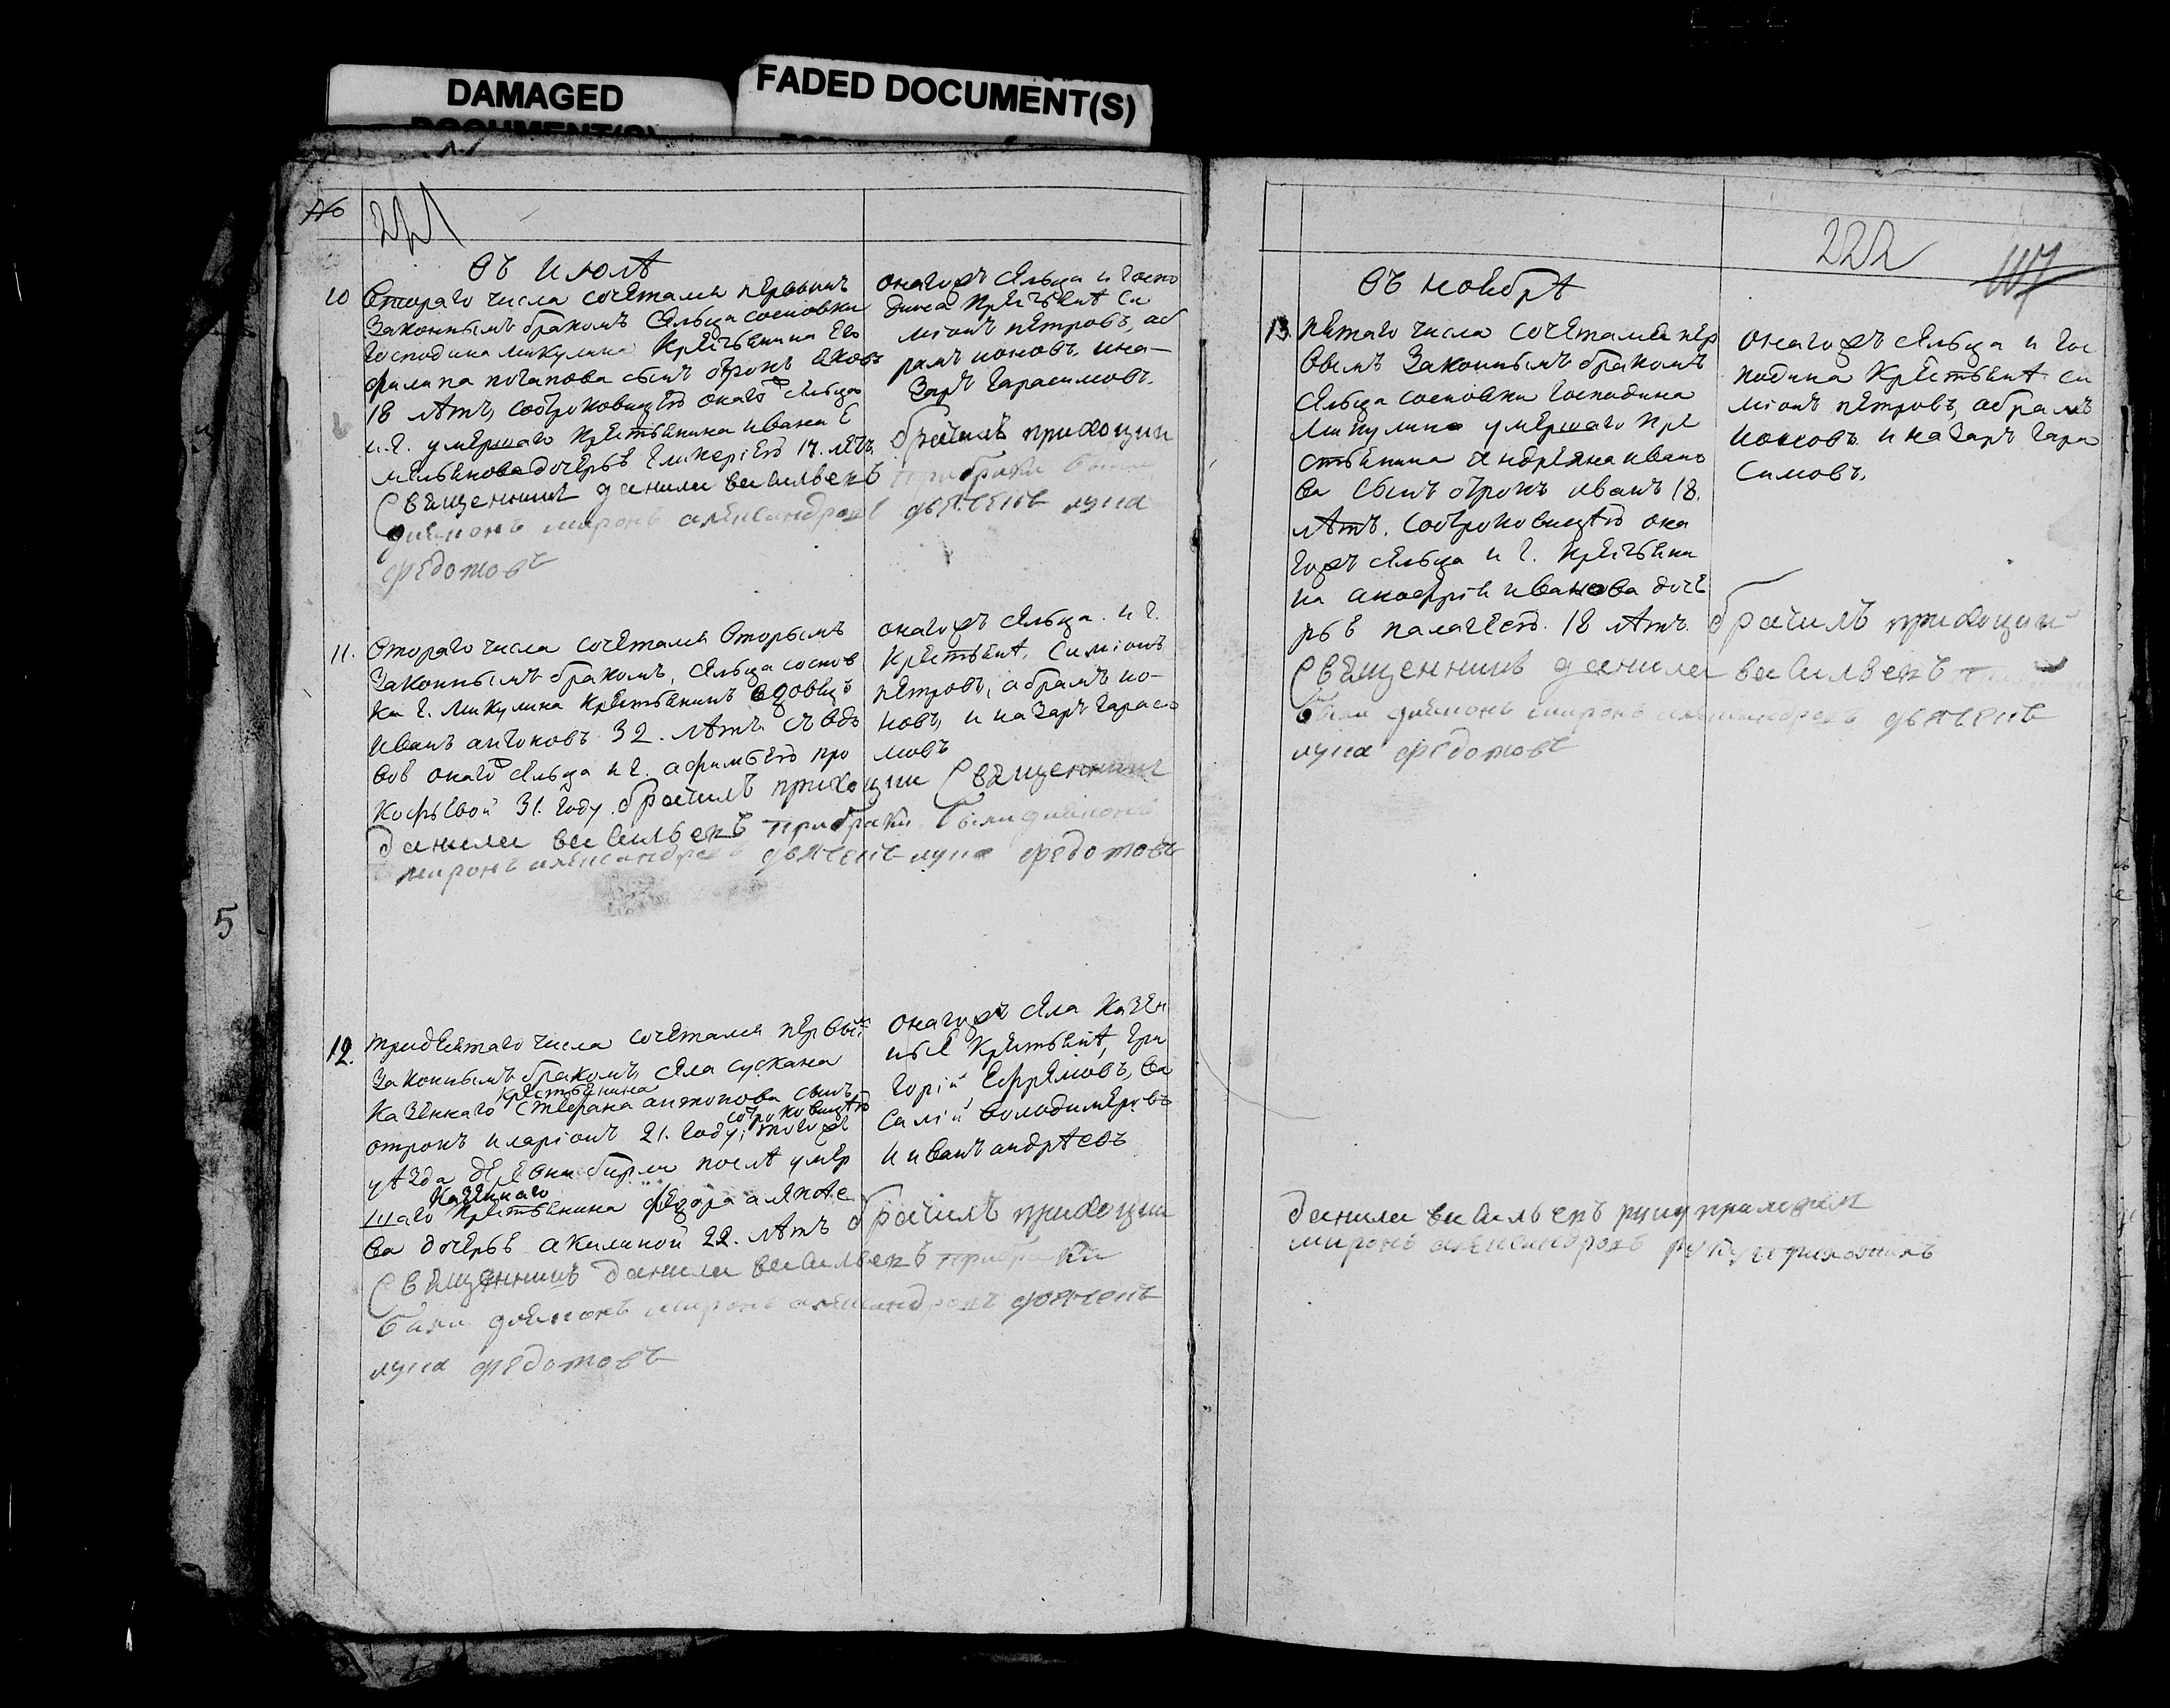 DAMAGED
DOCUMENT(S)
FADED DOCUMENT(S)
№
221
Въ июлѣ
10
Втораго числа сочетался первымъ
законнымъ бракомъ сельца сосновки
господина микулина крестьянина
филипа потапова сынъ отрокъ яковъ
18 лѣтъ, соотроковицею онаго сельца
и г. умершаго крестьянина ивана
дочерью гликериею 17. летъ
Священникъ данила васильевъ
дияконъ миронъ александровъ дьячекъ лука
федотовъ
онагожъ сельца и госпо
дина крестьяне си
мионъ петровъ, аб
рамъ ионовъ. и на-
заръ гарасимовъ.
брачилъ приходции
при браки были
11.
Втораго числа сочетался вторымъ
законнымъ бракомъ, сельца соснов
ки г. микулина крестьянинъ вдовецъ
иванъ антоновъ 32. лѣтъ съ вдо
вою онаго сельца и г. афимьею про
кофьевой 31. году. брачилъ приходции Священникъ
данила васильевъ при браки были дияконъ
миронъ александровъ дьячекъ лука федотовъ
онагожъ сельца. и г.
крестьянѣ, симионъ
петровъ, абрамъ ио-
новъ, и назаръ гараси
мовъ
12.
тридцетаго числа сочетался первымъ
законнымъ бракомъ, села сускана
казеннаго крестьянина степана антонова сынъ
отрокъ иларионъ 21. году, соотроковицею тогожъ
уѣзда бирли послѣ умер
шаго казеннаго крестьянина федора алексѣе
ва дочерью акилиной 22. лѣтъ брачилъ приходции
Священникъ данила васильевъ при браки
были дияконъ миронъ александровъ дьячекъ
лука федотовъ
онагожъ села казен
ные крестьянѣ, гри
горій ефремовъ, ва
силій володимеровъ
и иванъ андрѣевъ
5
222
107
Въ ноябрѣ
13.
пятаго числа сочетался пер
вымъ законнымъ бракомъ
сельца сосновки господина
микулина умершаго кре
стьянина андреяна ивано
ва сынъ отрокъ иванъ 18.
лѣтъ. соотроковицею она
гожъ сельца и г. крестьяни
на анофрія иванова доче
рью палагеею. 18 лѣтъ. брачилъ приходции
Священникъ данила васильевъ при
были дияконъ миронъ александровъ дьячекъ
лука федотовъ
онагожъ сельца и гос
подина крестьянѣ си
мионъ петровъ, абрамъ
ионовъ. и назаръ гара
симовъ.
данила васильевъ руку приложилъ
миронъ александровъ руку приложилъ